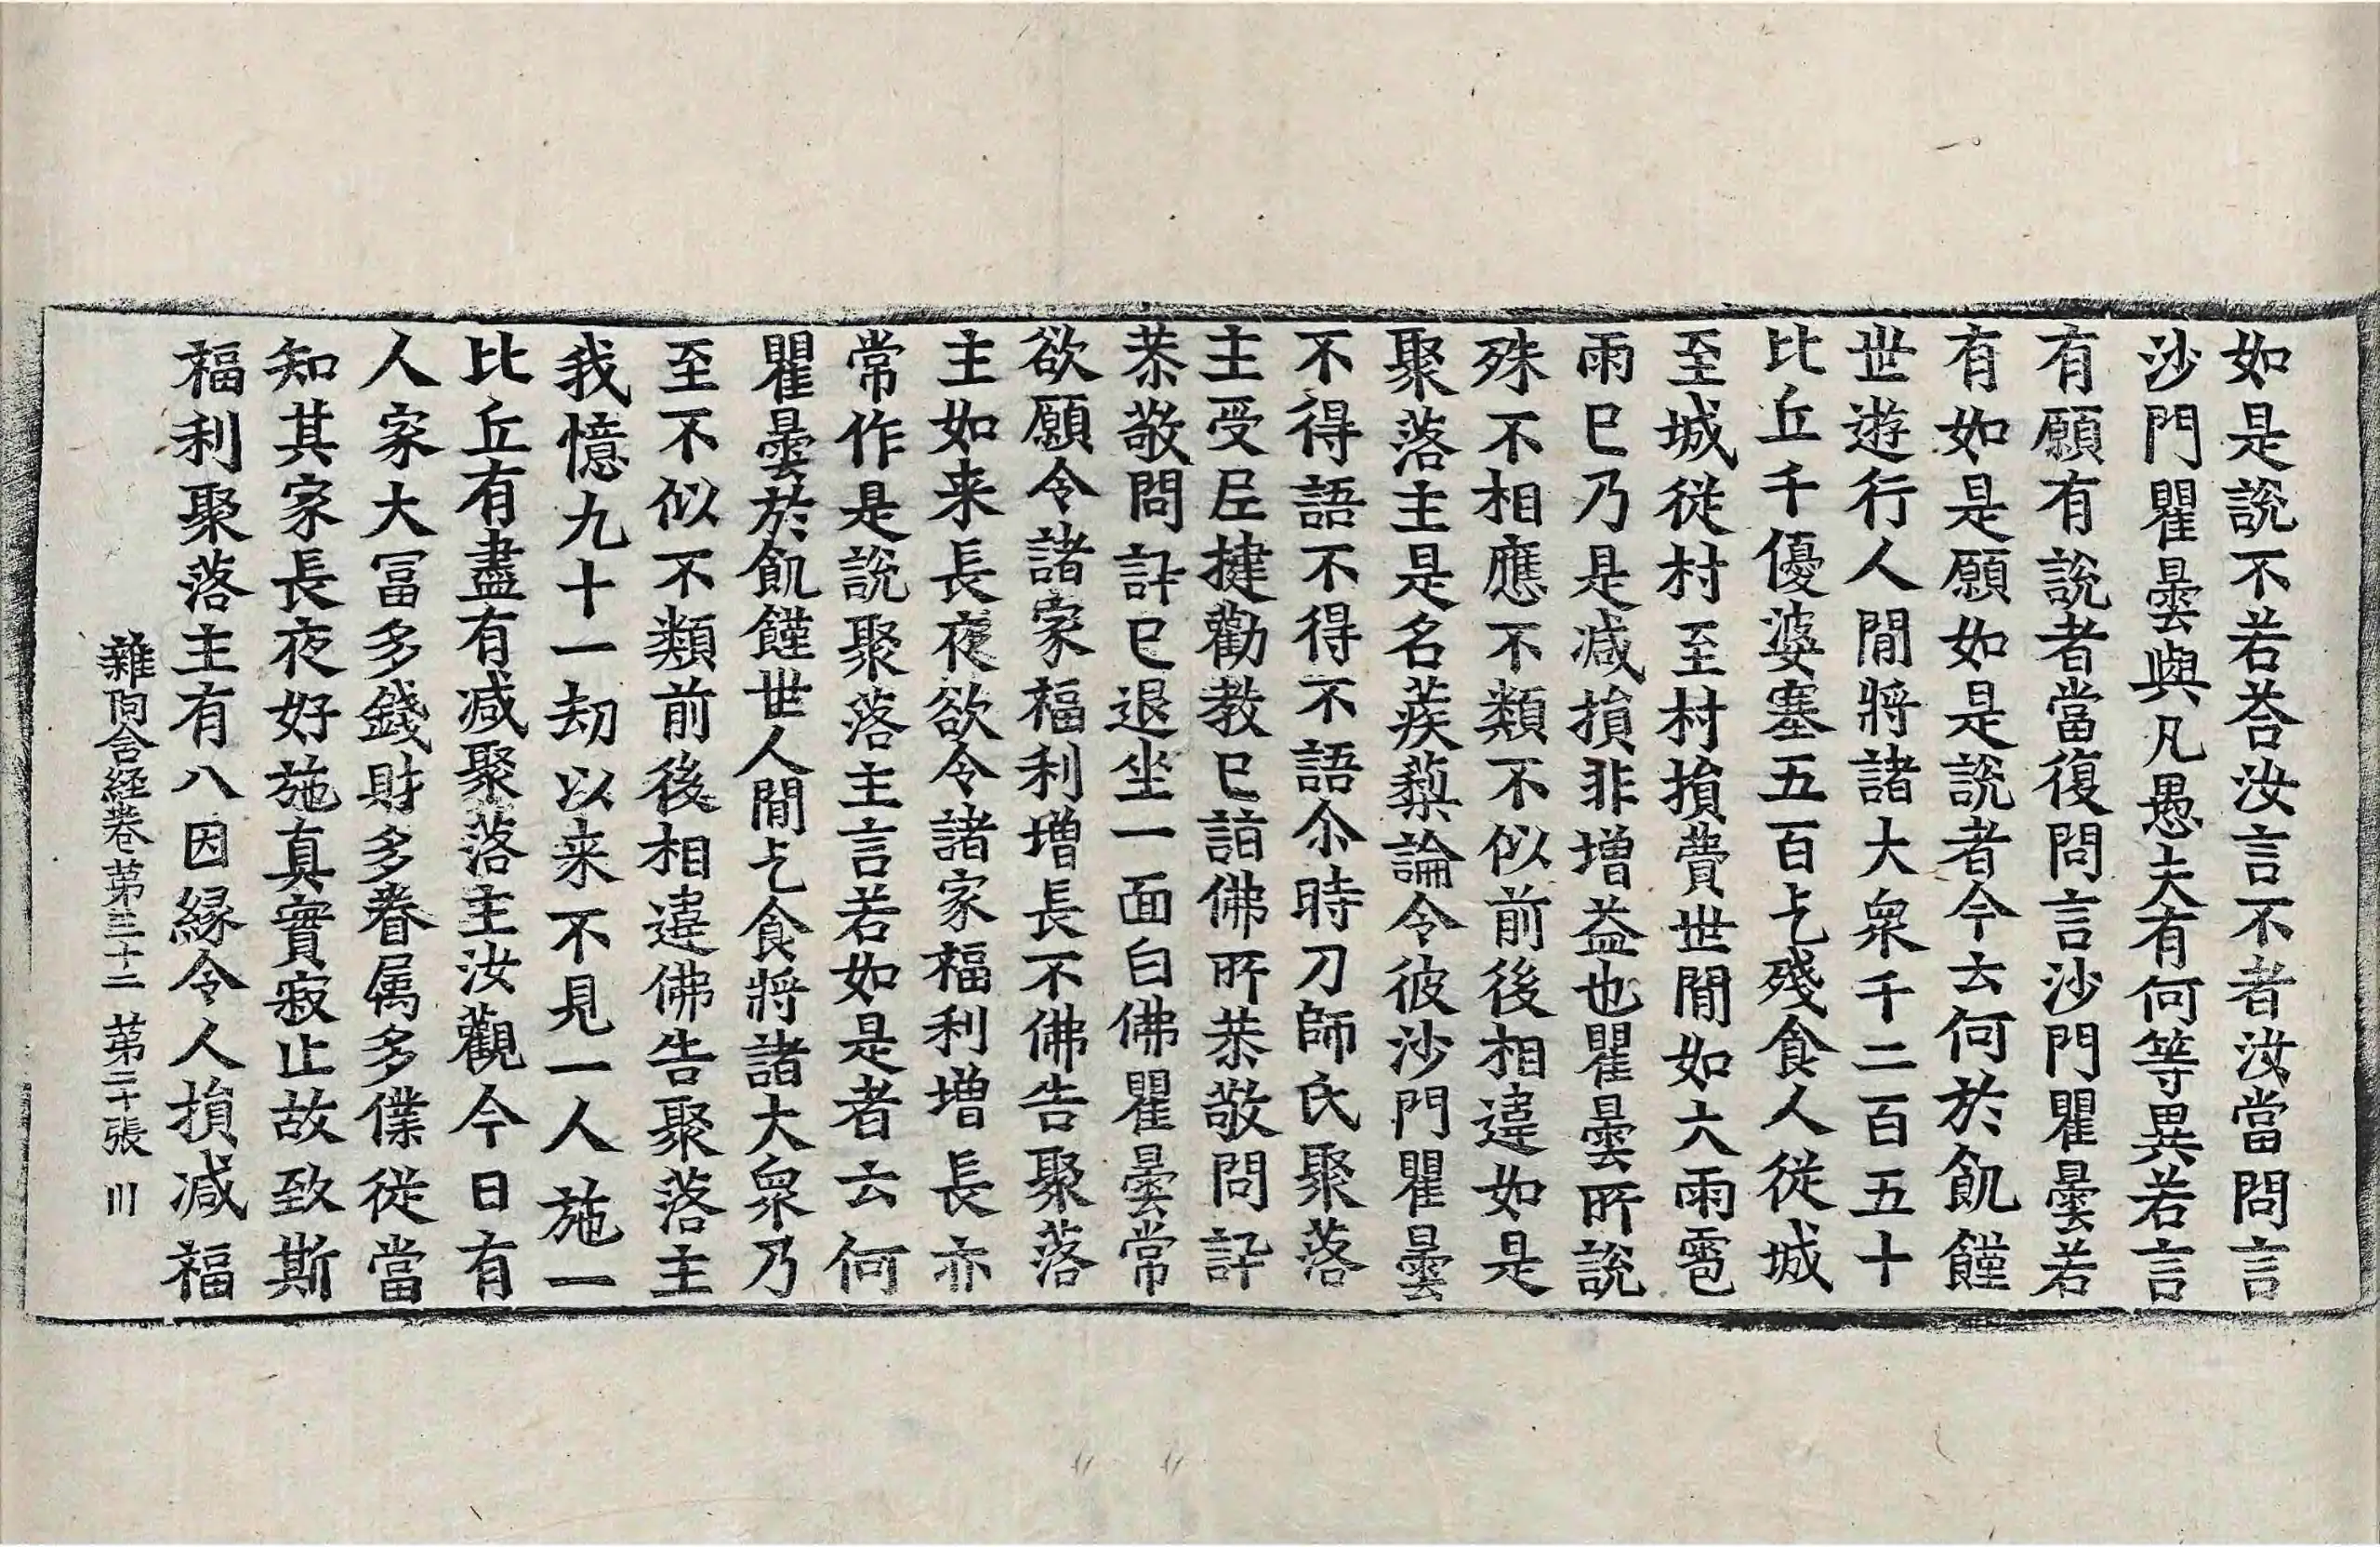 如是說不若荅汝言不者汝當問言
沙門瞿曇與凡愚夫有何等異若言
有願有說者當復問言沙門瞿曇若
有如是願如是說者今云何於飢饉
世遊行人間將諸大衆千二百五十
比丘千優婆塞五百乞殘食人從城
至城從村至村損費世間如大雨雹
雨已乃是减損非增益也瞿曇所說
殊不相應不類不似前後相違如是
聚落主是名蒺蔾論令彼沙門瞿曇
不得語不得不語尒時刀師氏聚落
主受尼揵勸教已詣佛所恭敬問訊
恭敬問訊已退坐一面白佛瞿曇常
欲願令諸家福利增長不佛告聚落
主如来長夜欲令諸家福利增長亦
常作是說聚落主言若如是者云何
瞿曇於飢饉世人間乞食將諸大衆乃
至不似不類前後相違佛告聚落主
我憶九十一劫以来不見一人施一
比丘有盡有减聚落主汝觀今日有
人家大冨多錢財多眷属多僕從當
知其家長夜好施真實寂止故致斯
福利聚落主有八因緣令人損减福
雜阿含経卷第三十二 第二十張 川